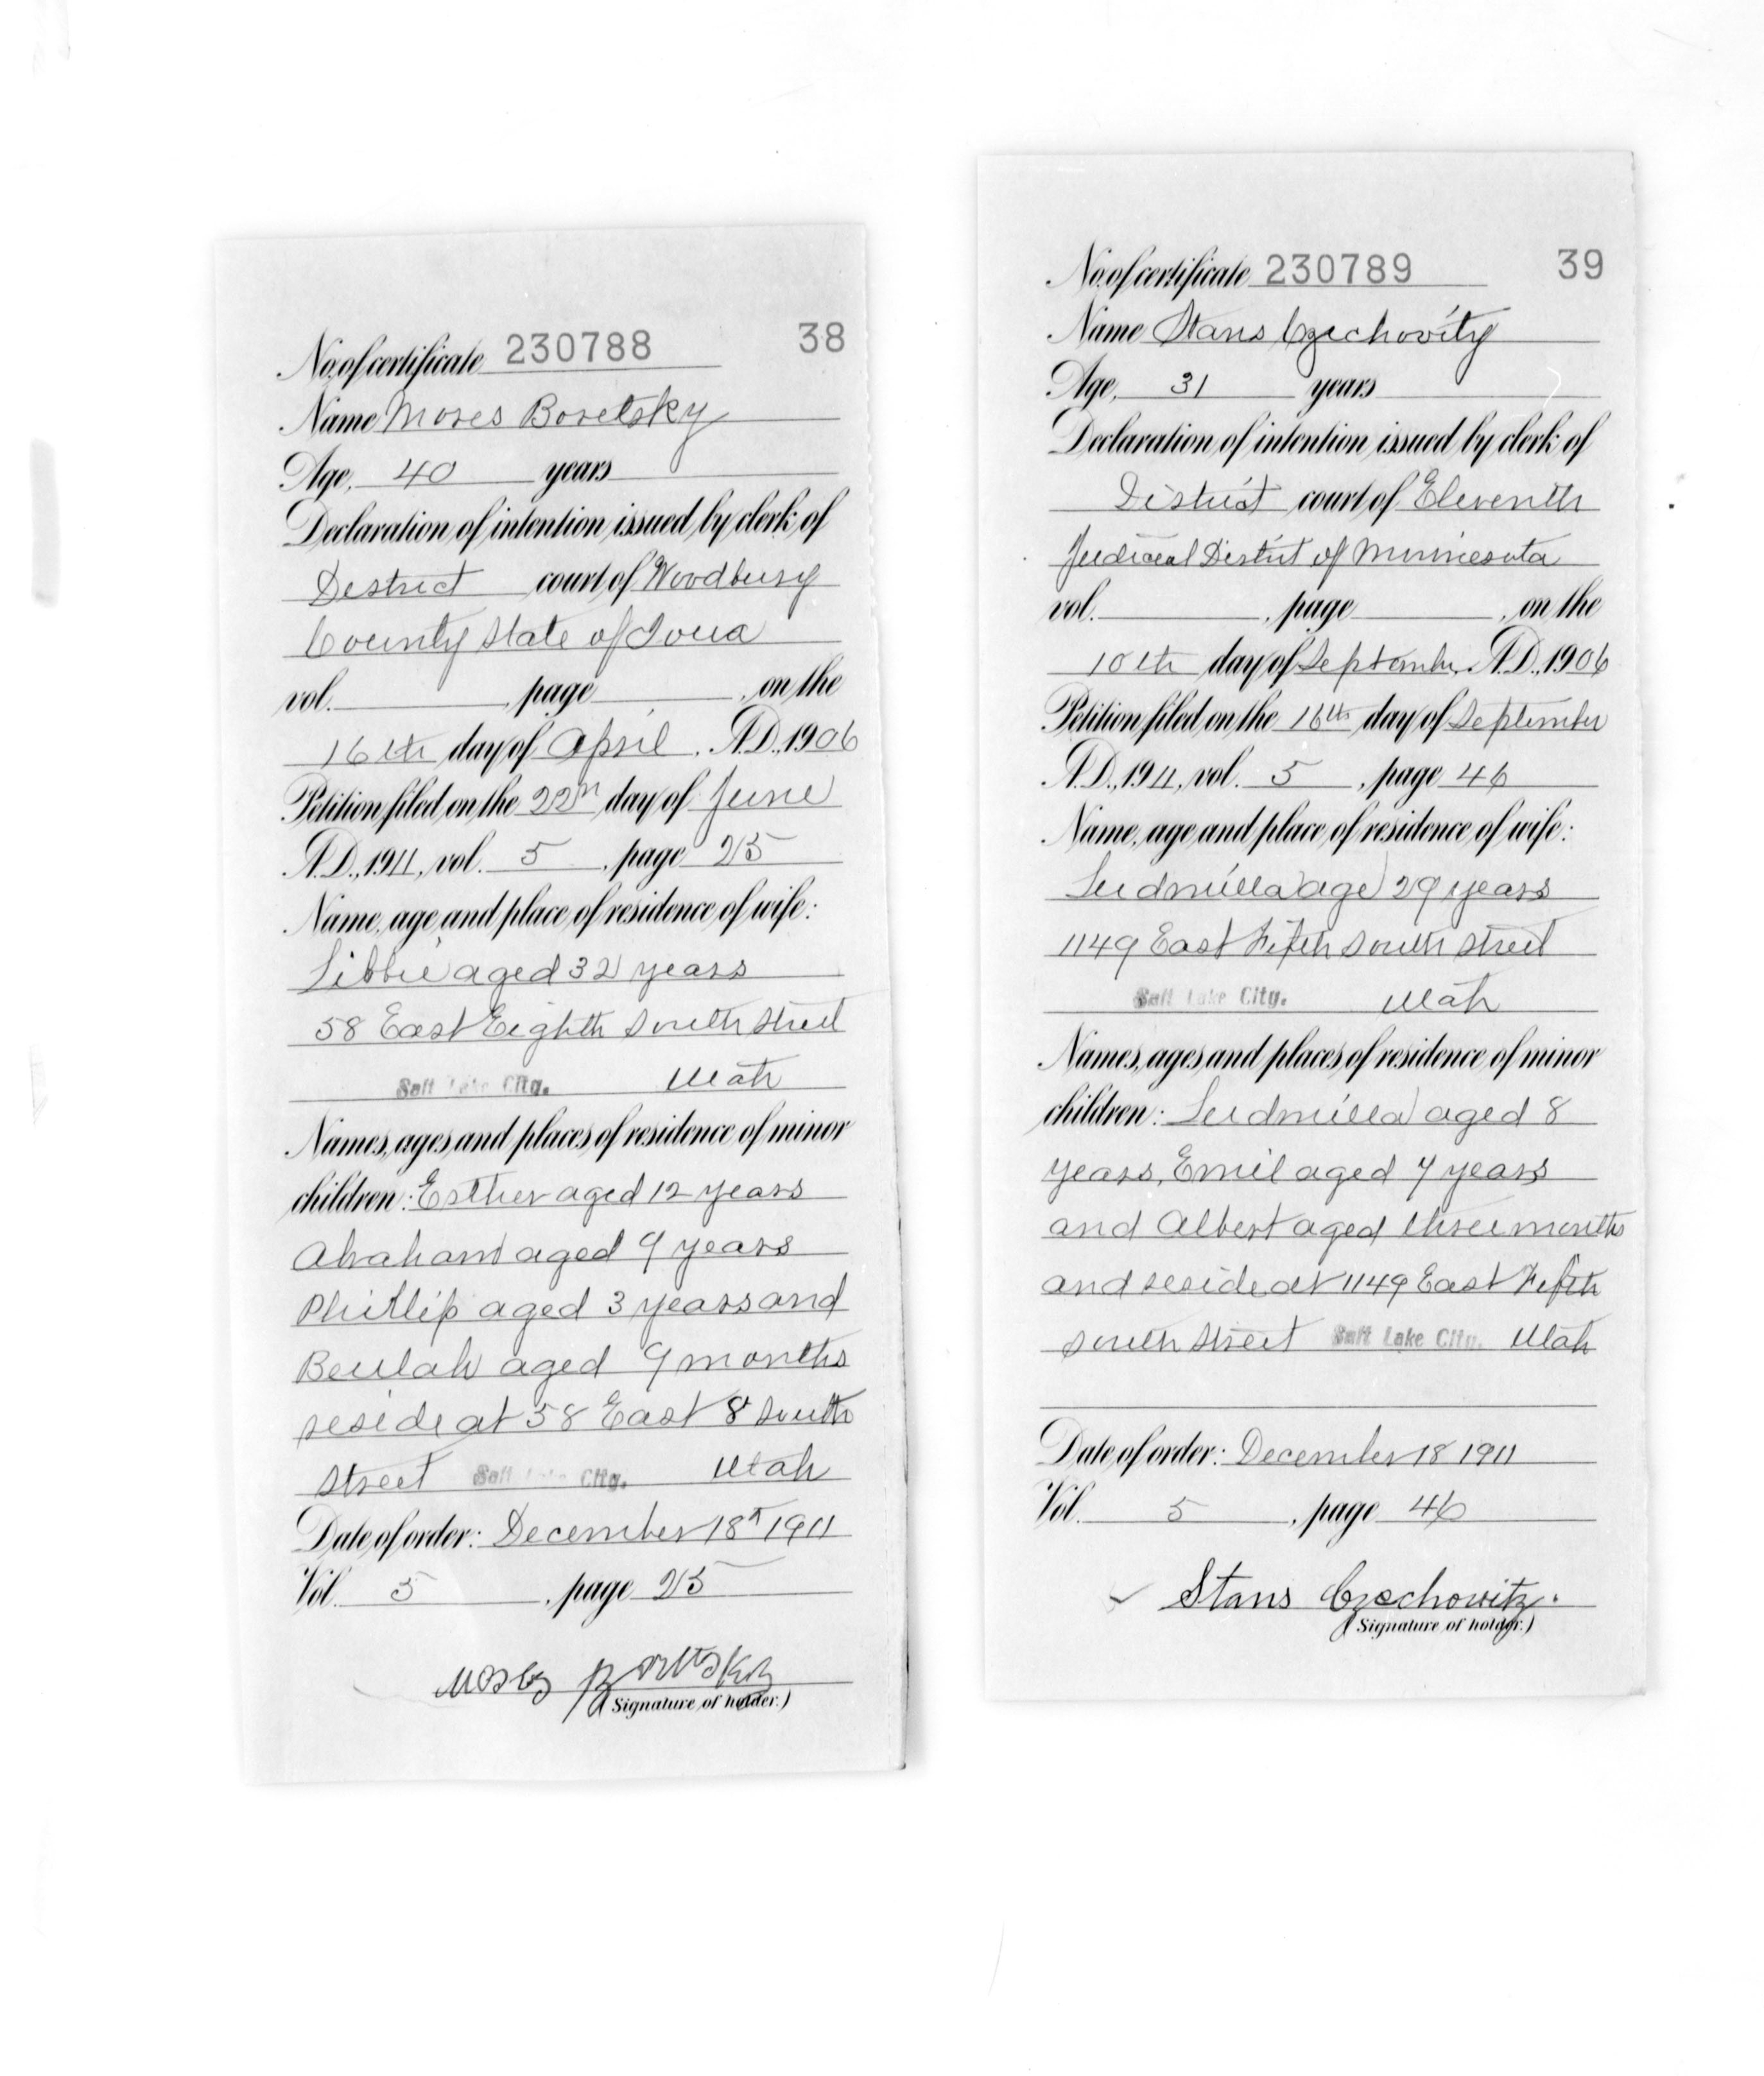 No. of certificate 230788 38
Name Moses Boretsky
Age, 40 years
Declaration of intention issued by clerk of
District court of Woodbury
County State of Iowa
vol. , page , on the
16th day of April, A.D., 1906
Petition filed on the 22n day of June
A.D., 1911, vol. 5, page 25
Name, age and place of residence of wife:
Libbie aged 32 years
58 East Eighth South Street
Salt Lake City. Utah
Names, ages and places of residence of minor
children: Esther aged 12 years
Abraham aged 9 years
Phillip aged 3 years and
Beulah aged 9 months
reside at 58 East 8 South
Street Salt Lake City. Utah
Date of order: December 18th 1911
Vol. 5, page 25
(Signature of holder.)
No. of certificate 230789 39
Name Stans Czechovity
Age, 31 years
Declaration of intention issued by clerk of
District court of Eleventh
Judicial District of Minnesota
vol. , page , on the
10th day of September, A.D., 1906
Petition filed on the 16th day of September
A.D., 1911, vol. 5, page 46
Name, age and place of residence of wife:
Ludmilla age 29 years
1149 East Fifth South Street
Salt Lake City. Utah
Names, ages and places of residence of minor
children: Ludmilla aged 8
years, Emil aged 7 years
and Albert aged three months
and reside at 1149 East Fifth
South Street Salt Lake City. Utah
Date of order: December 18 1911
Vol. 5, page 46
Stans Czechowitz.
(Signature of holder.)